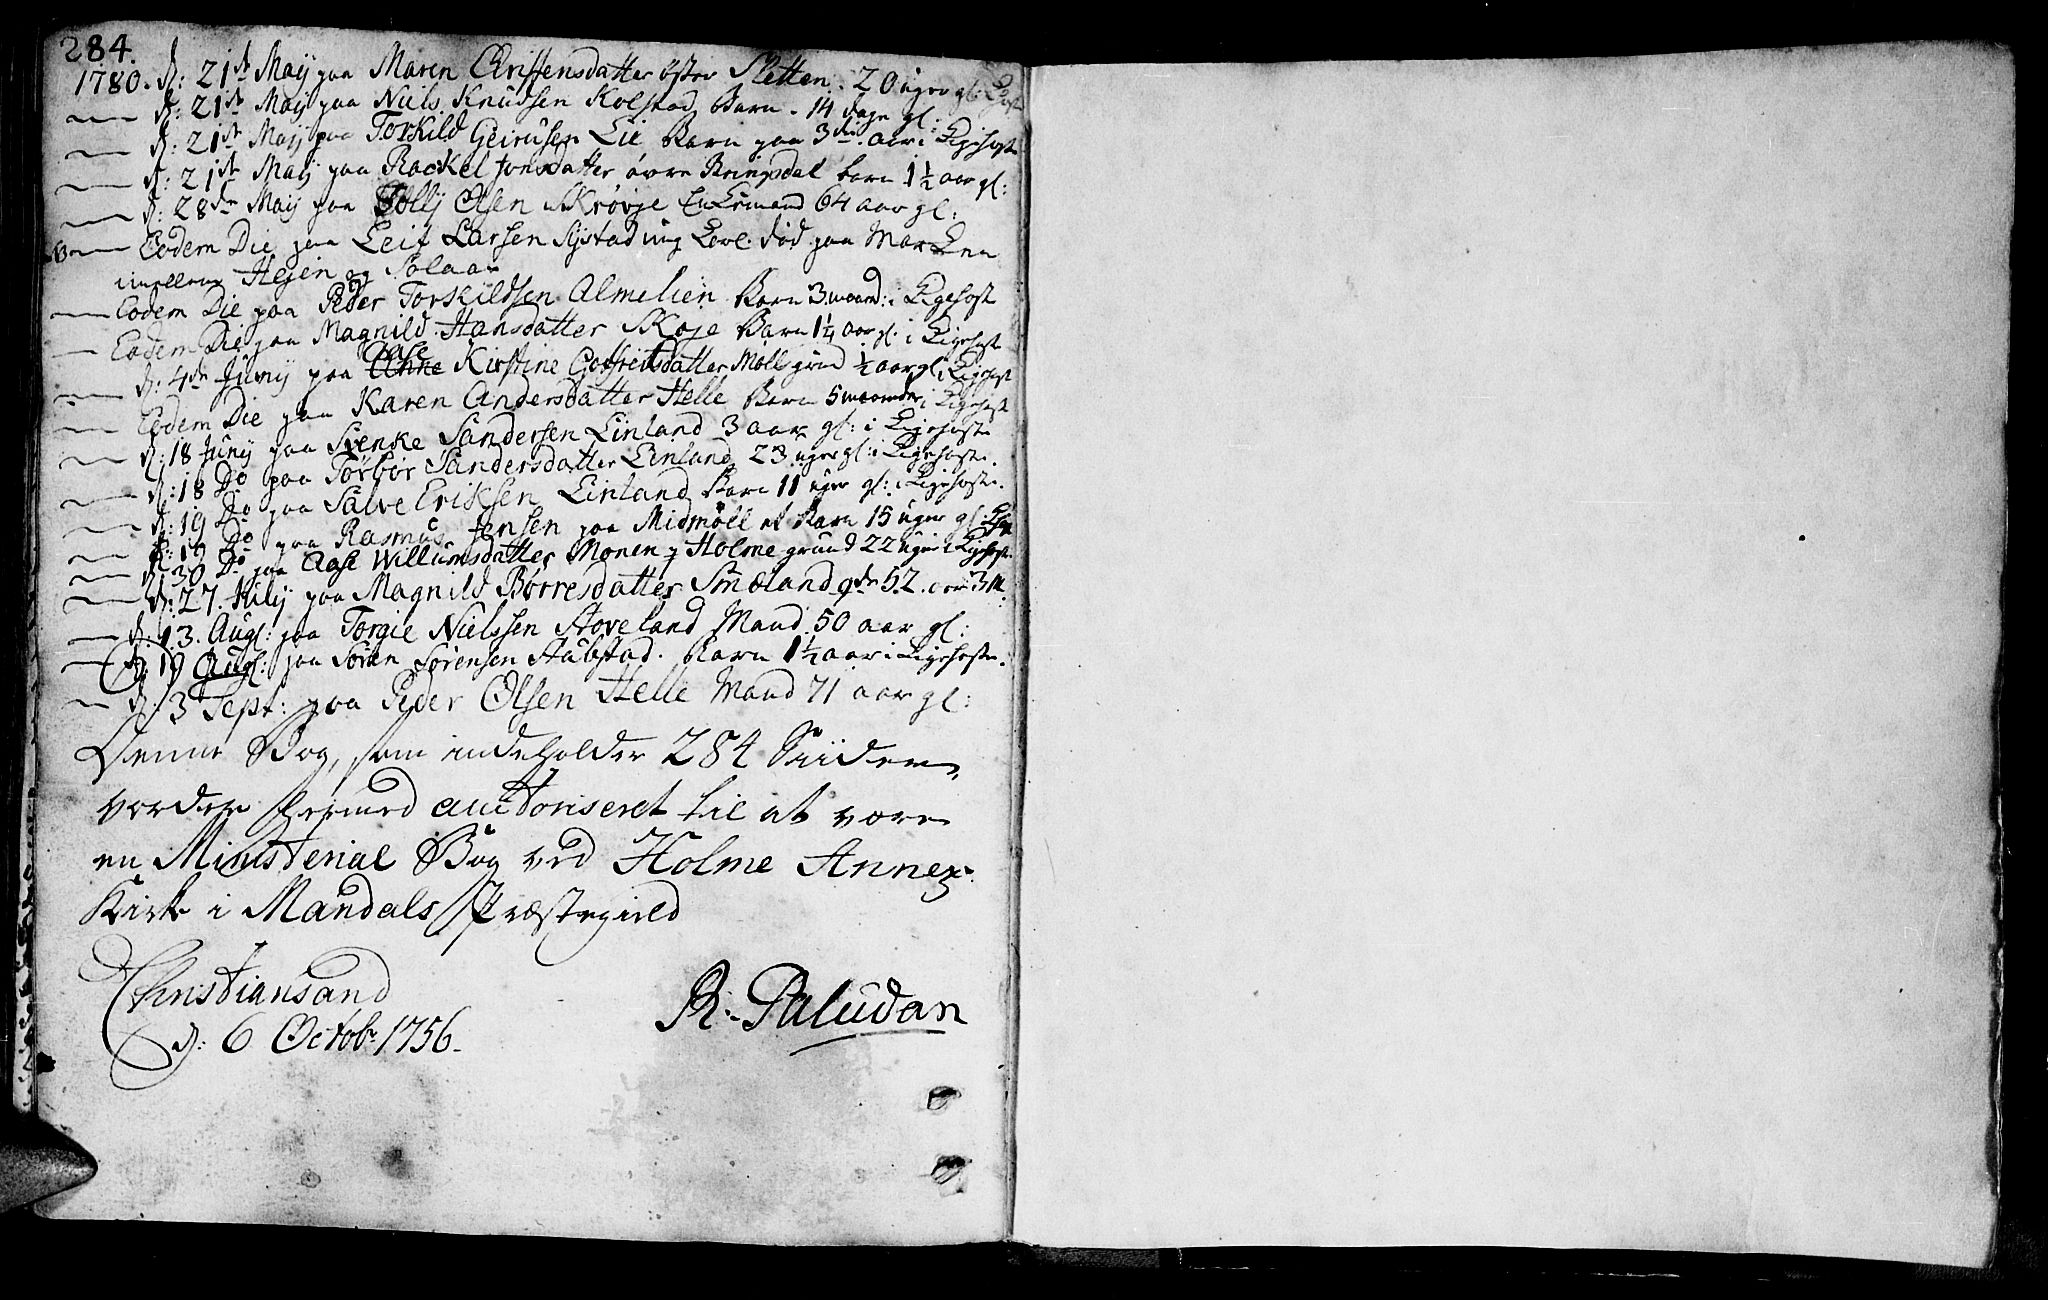 284.
1780. d: 21de Maij paa Maren Christensdatter øster Sletten. 20 uger gl:
d: 21de Maij paa Niels Knudsen Kolstad Barn. 14 dage gl:
d: 21de Maij paa Torkild Geirulsen Lie Barn paa 3die aar i Kighoste
d: 21de Maij paa Rackel Jonsdatter øvre Ringsdal barn 1½ aar gl:
d: 28de Maij paa Tollij Olsen Skrøvje Enkemand 64 aar gl:
Eodem Die paa Leif Larsen Systad ung Karl. død paa Marken
imellem Hejen og Solaas
Eodem Die paa Peder Torkildsen Almelien Barn 3 maand: i Kigehoste
Eodem Die paa Magnild Hansdatter Skøje Barn 1¼ aar gl: i Kigehoste
d: 4de Junij paa Aase Kirstine Gotfreitsdatter Møllsgrud ½ aar gl. i Kigehoste
Eodem Die paa Karen Andersdatter Helle Barn 5 maaneder i Kigehoste
d: 18 Junij paa Svenke Sandersen Linland 3 aar gl: i Kigehoste
d: 18 Do paa Torbor Sandersdatter Linland 23 uger gl: i Kigehoste.
d: 19 Do paa Salve Eriksen Linland Barn 11 uger gl: i Kigehoste.
d: 19 Do paa Rasmus Jensen paa Midmøll et Barn 15 uger gl:
d: 30 Do paa Aase Willumsdatter Monen p Holme grund 22 uger i Kighoste
d: 27. Julij paa Magnild Børresdatter Smæland qde 52. aar 3 M:
d: 13. Augl: paa Torgie Nielssen Stoveland Mand 50 aar gl:
d: 19 Augl: paa Søren Sørensen Stubstad. Barn 1½ aar i Kigehoste.
d: 3 Sept: paa Peder Olsen Helle Mand 71 aar gl:
Denne Bog, som indeholder 284 Siider,
vorder hermed auctoriseret til at være
en Ministerial Bog ved Holme Annex
Kirke i Mandals Præstegield
Christiansand
d: 6 Octobr 1756.
R. Paludan